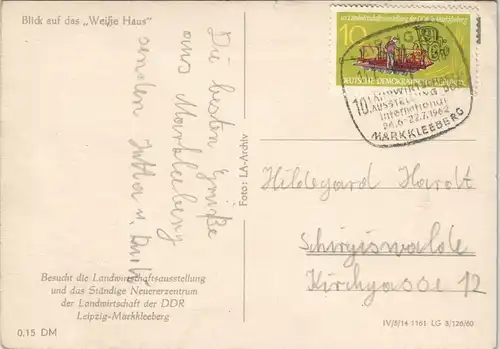 Blick auf das „Weiße Haus"
Die besten Grüße
aus Markkleeberg
senden Jutta u.
Besucht die Landwirtschaftsausstellung
und das Ständige Neuererzentrum
der Landwirtschaft der DDR
Leipzig-Markkleeberg
0,15 DM
Foto: LA-Archiv
10
DEUTSCHE DEMOKRATISCHE REPUBLIK
10. Landwirtschafts-
AUSSTELLUNG DDR
International
24.6.-22.7.1962
MARKKLEEBERG
Hildegard Hardt
Schirgiswalde
Kirchgasse 12
IV/5/14 1161 LG 3/126/60